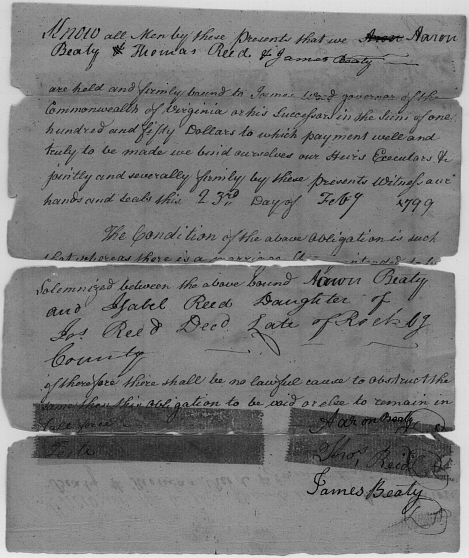 Know all Men by these Presents that we Aron Aaron
Beaty & Thomas Reed & James Beaty
are held and firmly bound to James Wood governor of the
Commonwealth of Virginia or his Successors in the sum of one
hundred and fifty Dollars to which payment well and
truly to be made we bind ourselves our Heirs Executors &c
jointly and severally firmly by these presents Witness our
hands and seals this 23rd Day of Feby 1799
The Condition of the above obligation is such
that whereas there is a marriage intended to be
Solemnized between the above bound Aaron Beaty
and Isabel Reed Daughter of
Reed Decd Late of Rockbg
County
if therefore there shall be no lawful cause to obstruct the
same then this obligation to be void or else to remain in
full force
Aaron Beaty
Teste
Thos, Reid
James Beaty